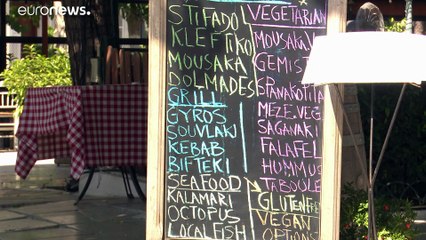 euronews.
STIFADO
KLEFTIKO
MOUSAKA
DOLMADES
GRILL
GYROS
SOUVLAKI
KEBAB
BIFTEKI
SEAFOOD
KALAMARI
OCTOPUS
LOCAL FISH
VEGETARIAN
MOUSAKA
GEMIS
SPANAKOTIA
MEZE VEG
SAGANAKI
FALAFEL
HUMMUS
TABOULE
GLUTEN FREE
VEGAN
OPTIONS